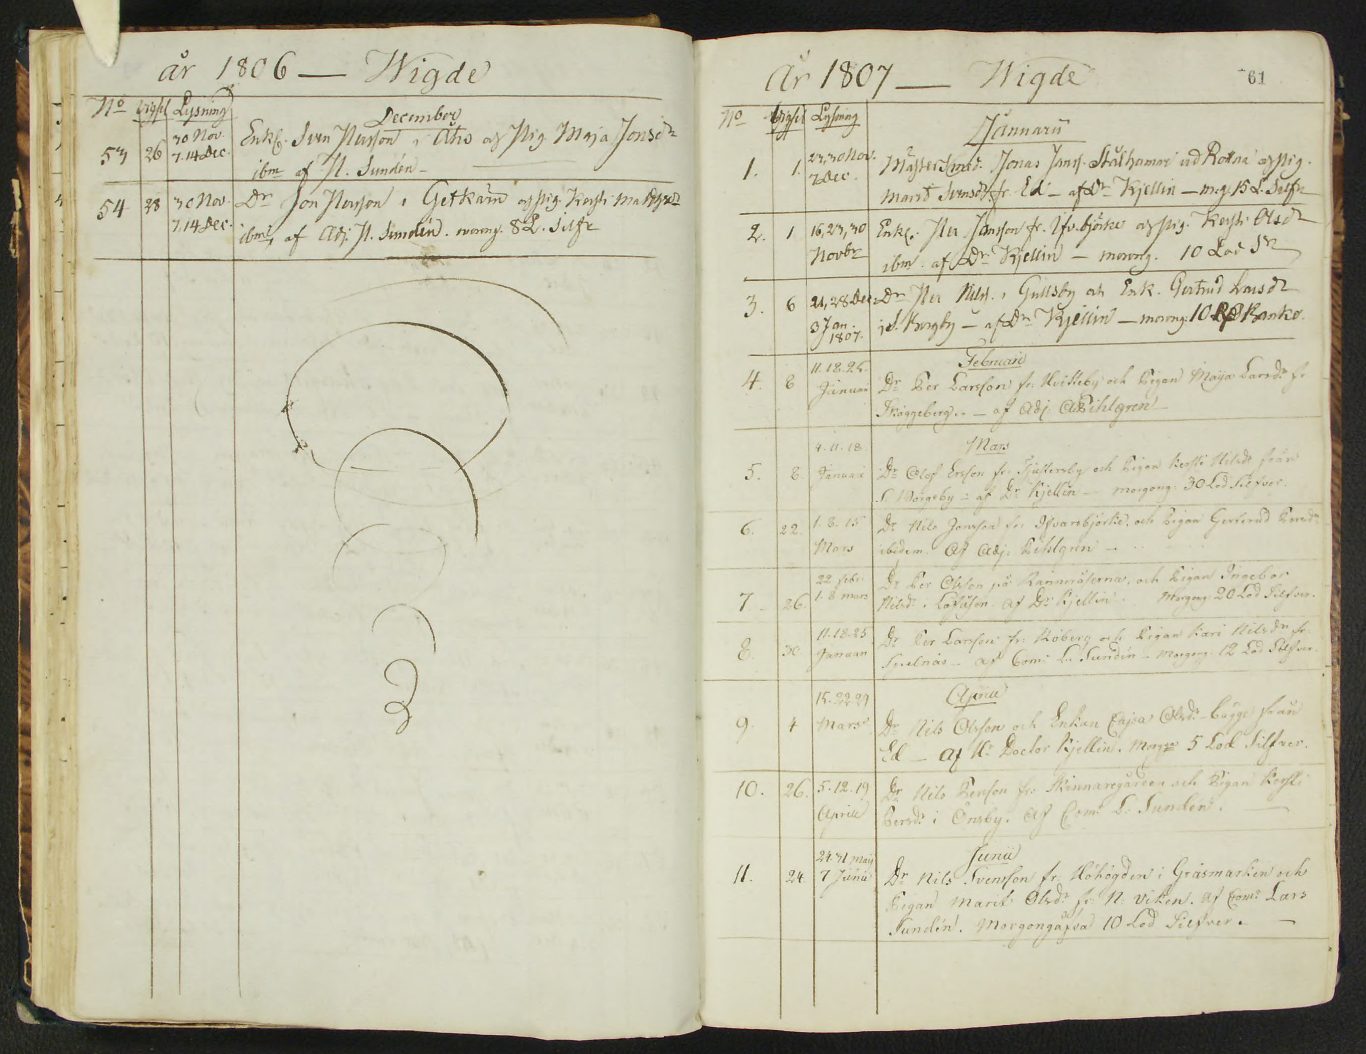 år 1806 — Wigde
No Vigsl Lysning
December
53 26 30 Nov. 7.14 Dec. Enkl. Sven Persson i Åhs og Pig. Maja Jonsdr
ibm af H. Sundén —
54 28 30 Nov. 7.14 Dec. Dr Jon Persson i Getkärn og Pig. Kersti
ibm, af Adj. H. Sundén. morong. 8 L. Silfr
År 1807 — Wigde
61
No Vigsl Lysning
Januarii
1. 1. 23,30 Nov. 7 Dec. Jonas Stålhamar vid Rottna og Pig.
Marit Svensdr fr. Ed — af Dr Kjellin — mrg. 15 L. Silfr
2. 1 16,23,30 Novbr Enkl. Per Jonsson fr. Ifv.björke og Pig. Kersti Olsdr
ibm. af Dr Kjellin — morong. 10 Lod Sr
3. 6 21,28 Dec. 3 Jan. 1807. Dr Per Nils. i Gullsby och Enk. Gertrud Larsdr
i S. Borgby — af Dr Kjellin — morong. 10 Rd Banko.
Februari
4. 8 11.18.25. Januari Dr Per Larsson fr. och Pigan Maija Larsdr fr
Skäggeberg. — af Adj. A Pihlgren —
Mars
5. 8. 4.11.18. Januari Dr Olof Ersson fr. och Pigan Kersti Nilsdr från
S. Borgeby — af Dr Kjellin — morgong. 30 Lod Silfver.
6. 22. 1.8.15 Mars Dr Nils Jonsson fr. Ifvarsbjörke, och Pigan Gertrud Persdr
ibidem. Af Adj. Pihlgren —
7 26. 22 Febr. 1.8 Mars Dr Per Olsson på och Pigan Ingebor
Nilsdr i af Dr Kjellin. Morgong. 20 Lod Silfver.
8. 30. 11.18.25 Januari Dr Per Larsson fr. Höberg och Pigan Kari Nilsdr fr.
Spelnäs — af Com: L. Sundén — Morgong. 12 Lod Silfver.
April
9. 4 15.22.29 Mars Dr Nils Olsson och Enkan Cajsa Olsdr Bägge från
Ed — af Hr Doctor Kjellin. Morgg: 5 Lod Silfver.
10. 26. 5.12.19 Aprill Dr Nils Persson fr. Skinnaregården och Pigan Kersti
Persdr i Önsby. Af Com: L. Sundén. —
Junii
11. 24. 24.31 Maij 7 Junii Dr Nils Svensson fr. Höhögden i Gräsmarken och
Pigan Marit Olsdr fr. N: Viken. af Com: Lars
Sundén. Morgongåfva 10 Lod Silfver. —